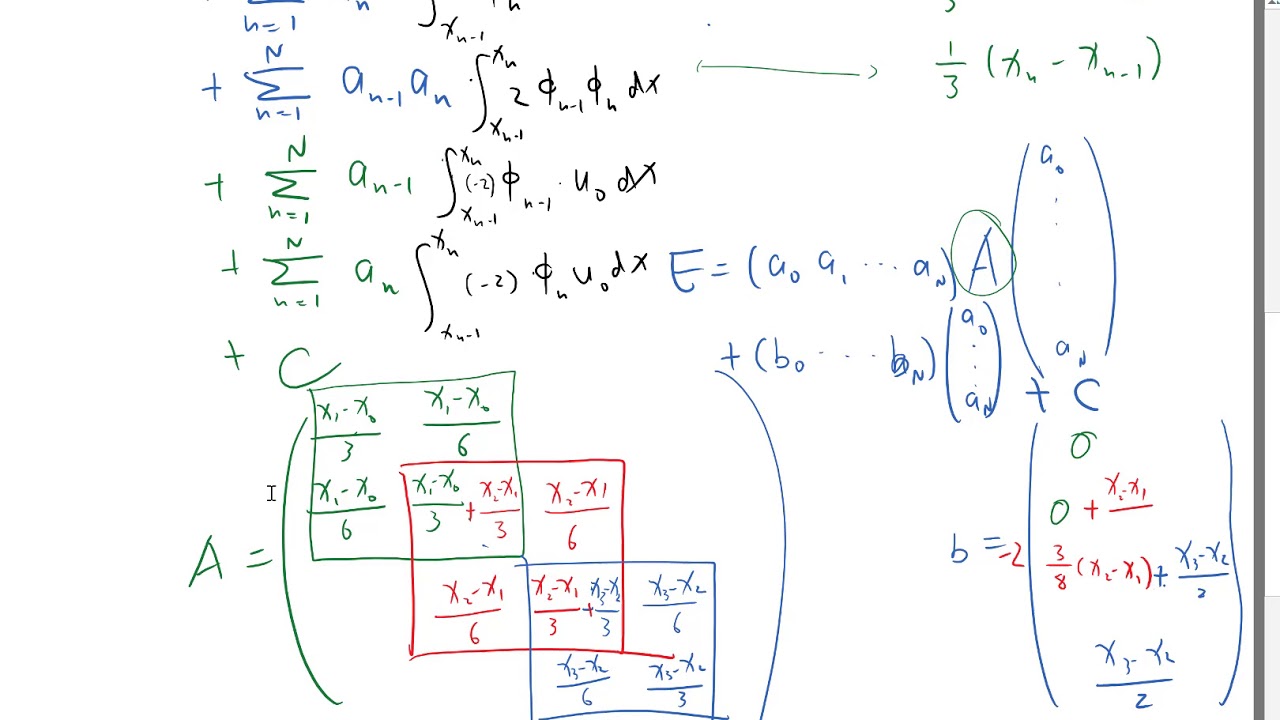 n=1 ∫_{x_{n-1}}
+ Σ_{n=1}^{N} a_{n-1} a_n ∫_{x_{n-1}}^{x_n} 2 ϕ_{n-1} ϕ_n dx ⟷ 1/3 (x_n - x_{n-1})
+ Σ_{n=1}^{N} a_{n-1} ∫_{x_{n-1}}^{x_n} (-2) ϕ_{n-1} · u_0 dx
+ Σ_{n=1}^{N} a_n ∫_{x_{n-1}}^{x_n} (-2) ϕ_n u_0 dx
+ C
E = (a_0 a_1 ··· a_N) A (a_0 ⋮ a_N)
+ (b_0 ··· b_N) (a_0 ⋮ a_N) + C
A =
(x_1-x_0)/3 (x_1-x_0)/6
(x_1-x_0)/6 (x_1-x_0)/3 + (x_2-x_1)/3 (x_2-x_1)/6
(x_2-x_1)/6 (x_2-x_1)/3 + (x_3-x_2)/3 (x_3-x_2)/6
(x_3-x_2)/6 (x_3-x_2)/3
b = -2
0
0 + (x_2-x_1)/
3/8 (x_2-x_1) + (x_3-x_2)/2
(x_3-x_2)/2